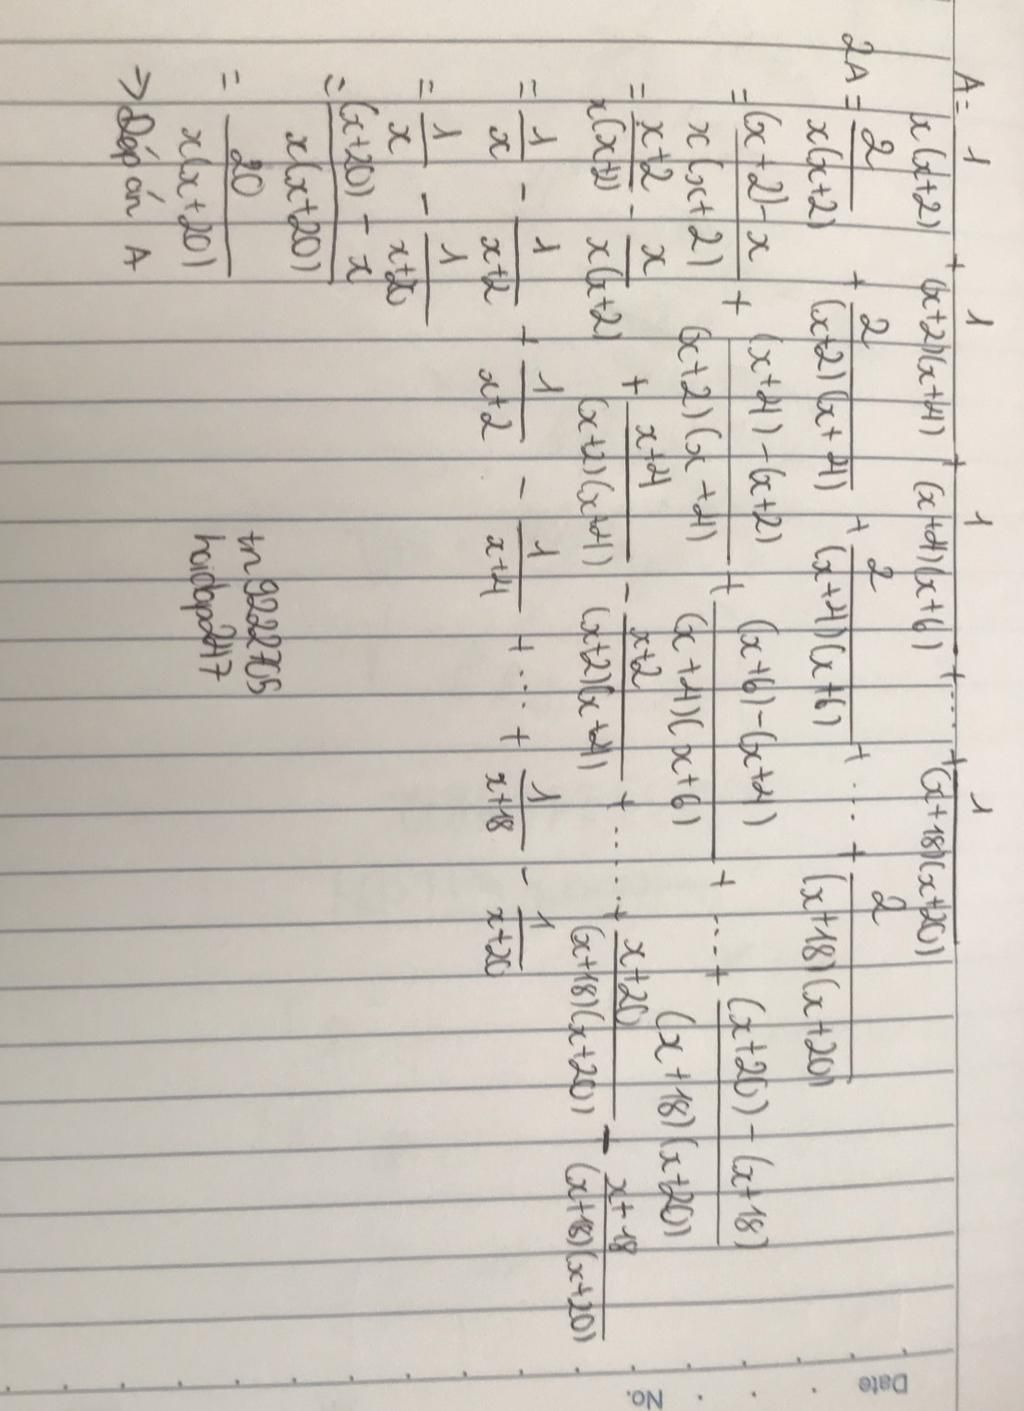 A = 1/x(x+2) + 1/(x+2)(x+4) + 1/(x+4)(x+6) + ... + 1/(x+18)(x+20)
2A = 2/x(x+2) + 2/(x+2)(x+4) + 2/(x+4)(x+6) + ... + 2/(x+18)(x+20)
= (x+2)-x/x(x+2) + (x+4)-(x+2)/(x+2)(x+4) + (x+6)-(x+4)/(x+4)(x+6) + ... + (x+20)-(x+18)/(x+18)(x+20)
= x+2/x(x+2) - x/x(x+2) + x+4/(x+2)(x+4) - x+2/(x+2)(x+4) + ..... + x+20/(x+18)(x+20) - x+18/(x+18)(x+20)
= 1/x - 1/x+2 + 1/x+2 - 1/x+4 + ... + 1/x+18 - 1/x+20
= 1/x - 1/x+20
= (x+20) - x/x(x+20)
= 20/x(x+20)
→ Đáp án A
tn9222705
hoidap247
Date
No.